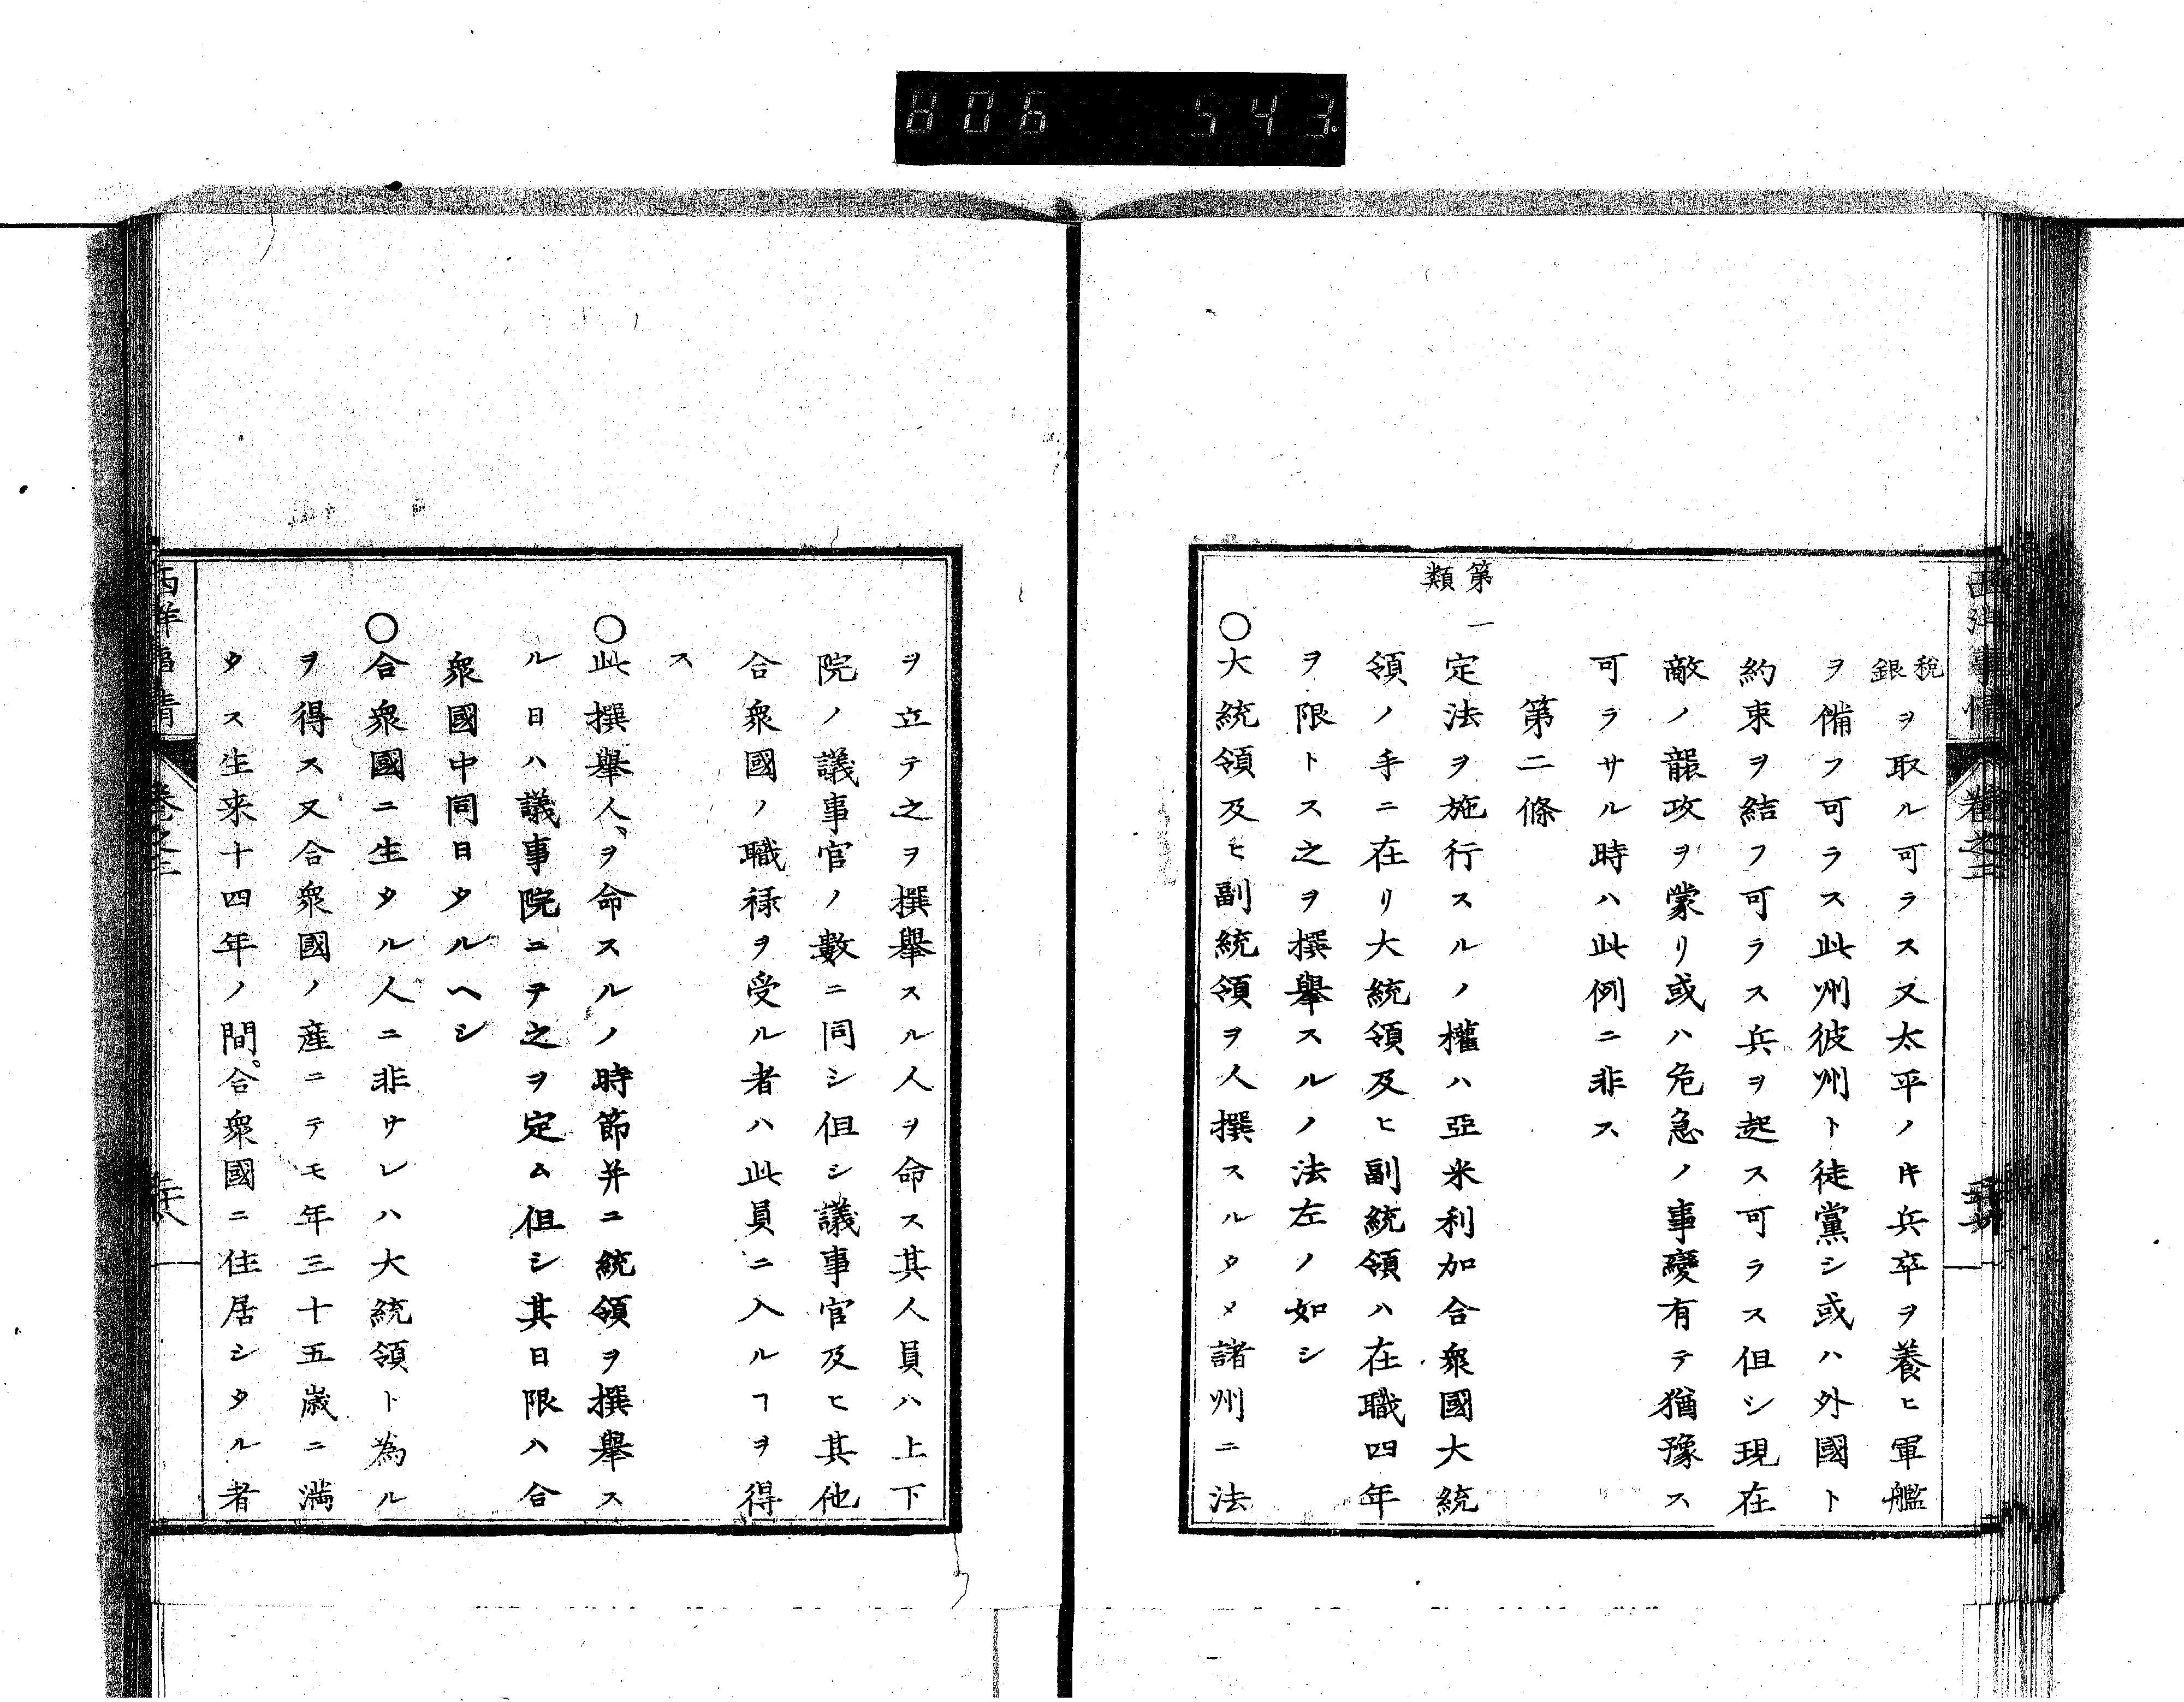 806 543.
西洋事情 卷之二
税銀ヲ取ル可ラス又太平ノ𪜈兵卒ヲ養ヒ軍艦
ヲ備フ可ラス此州彼州ト徒黨シ或ハ外國ト
約束ヲ結フ可ラス兵ヲ起ス可ラス但シ現在
敵ノ龍攻ヲ蒙リ或ハ危急ノ事變有テ猶豫ス
可ラサル時ハ此例ニ非ス
第二條
第一類
定法ヲ施行スルノ權ハ亞米利加合衆國大統
領ノ手ニ在リ大統領及ヒ副統領ハ在職四年
ヲ限トス之ヲ撰擧スルノ法左ノ如シ
〇大統領及ヒ副統領ヲ人撰スルタメ諸州ニ法
ヲ立テ之ヲ撰擧スル人ヲ命ス其人員ハ上下
院ノ議事官ノ數ニ同シ但シ議事官及ヒ其他
合衆國ノ職禄ヲ受ル者ハ此員ニ入ルヿヲ得
ス
〇此撰擧人ヲ命スルノ時節并ニ統領ヲ撰擧ス
ル日ハ議事院ニテ之ヲ定ム但シ其日限ハ合
衆國中同日タルヘシ
〇合衆國ニ生タル人ニ非サレハ大統領ト為ル
ヲ得ス又合衆國ノ産ニテモ年三十五歳ニ満
タス生来十四年ノ間。合衆國ニ住居シタル者
西洋事情 卷之二